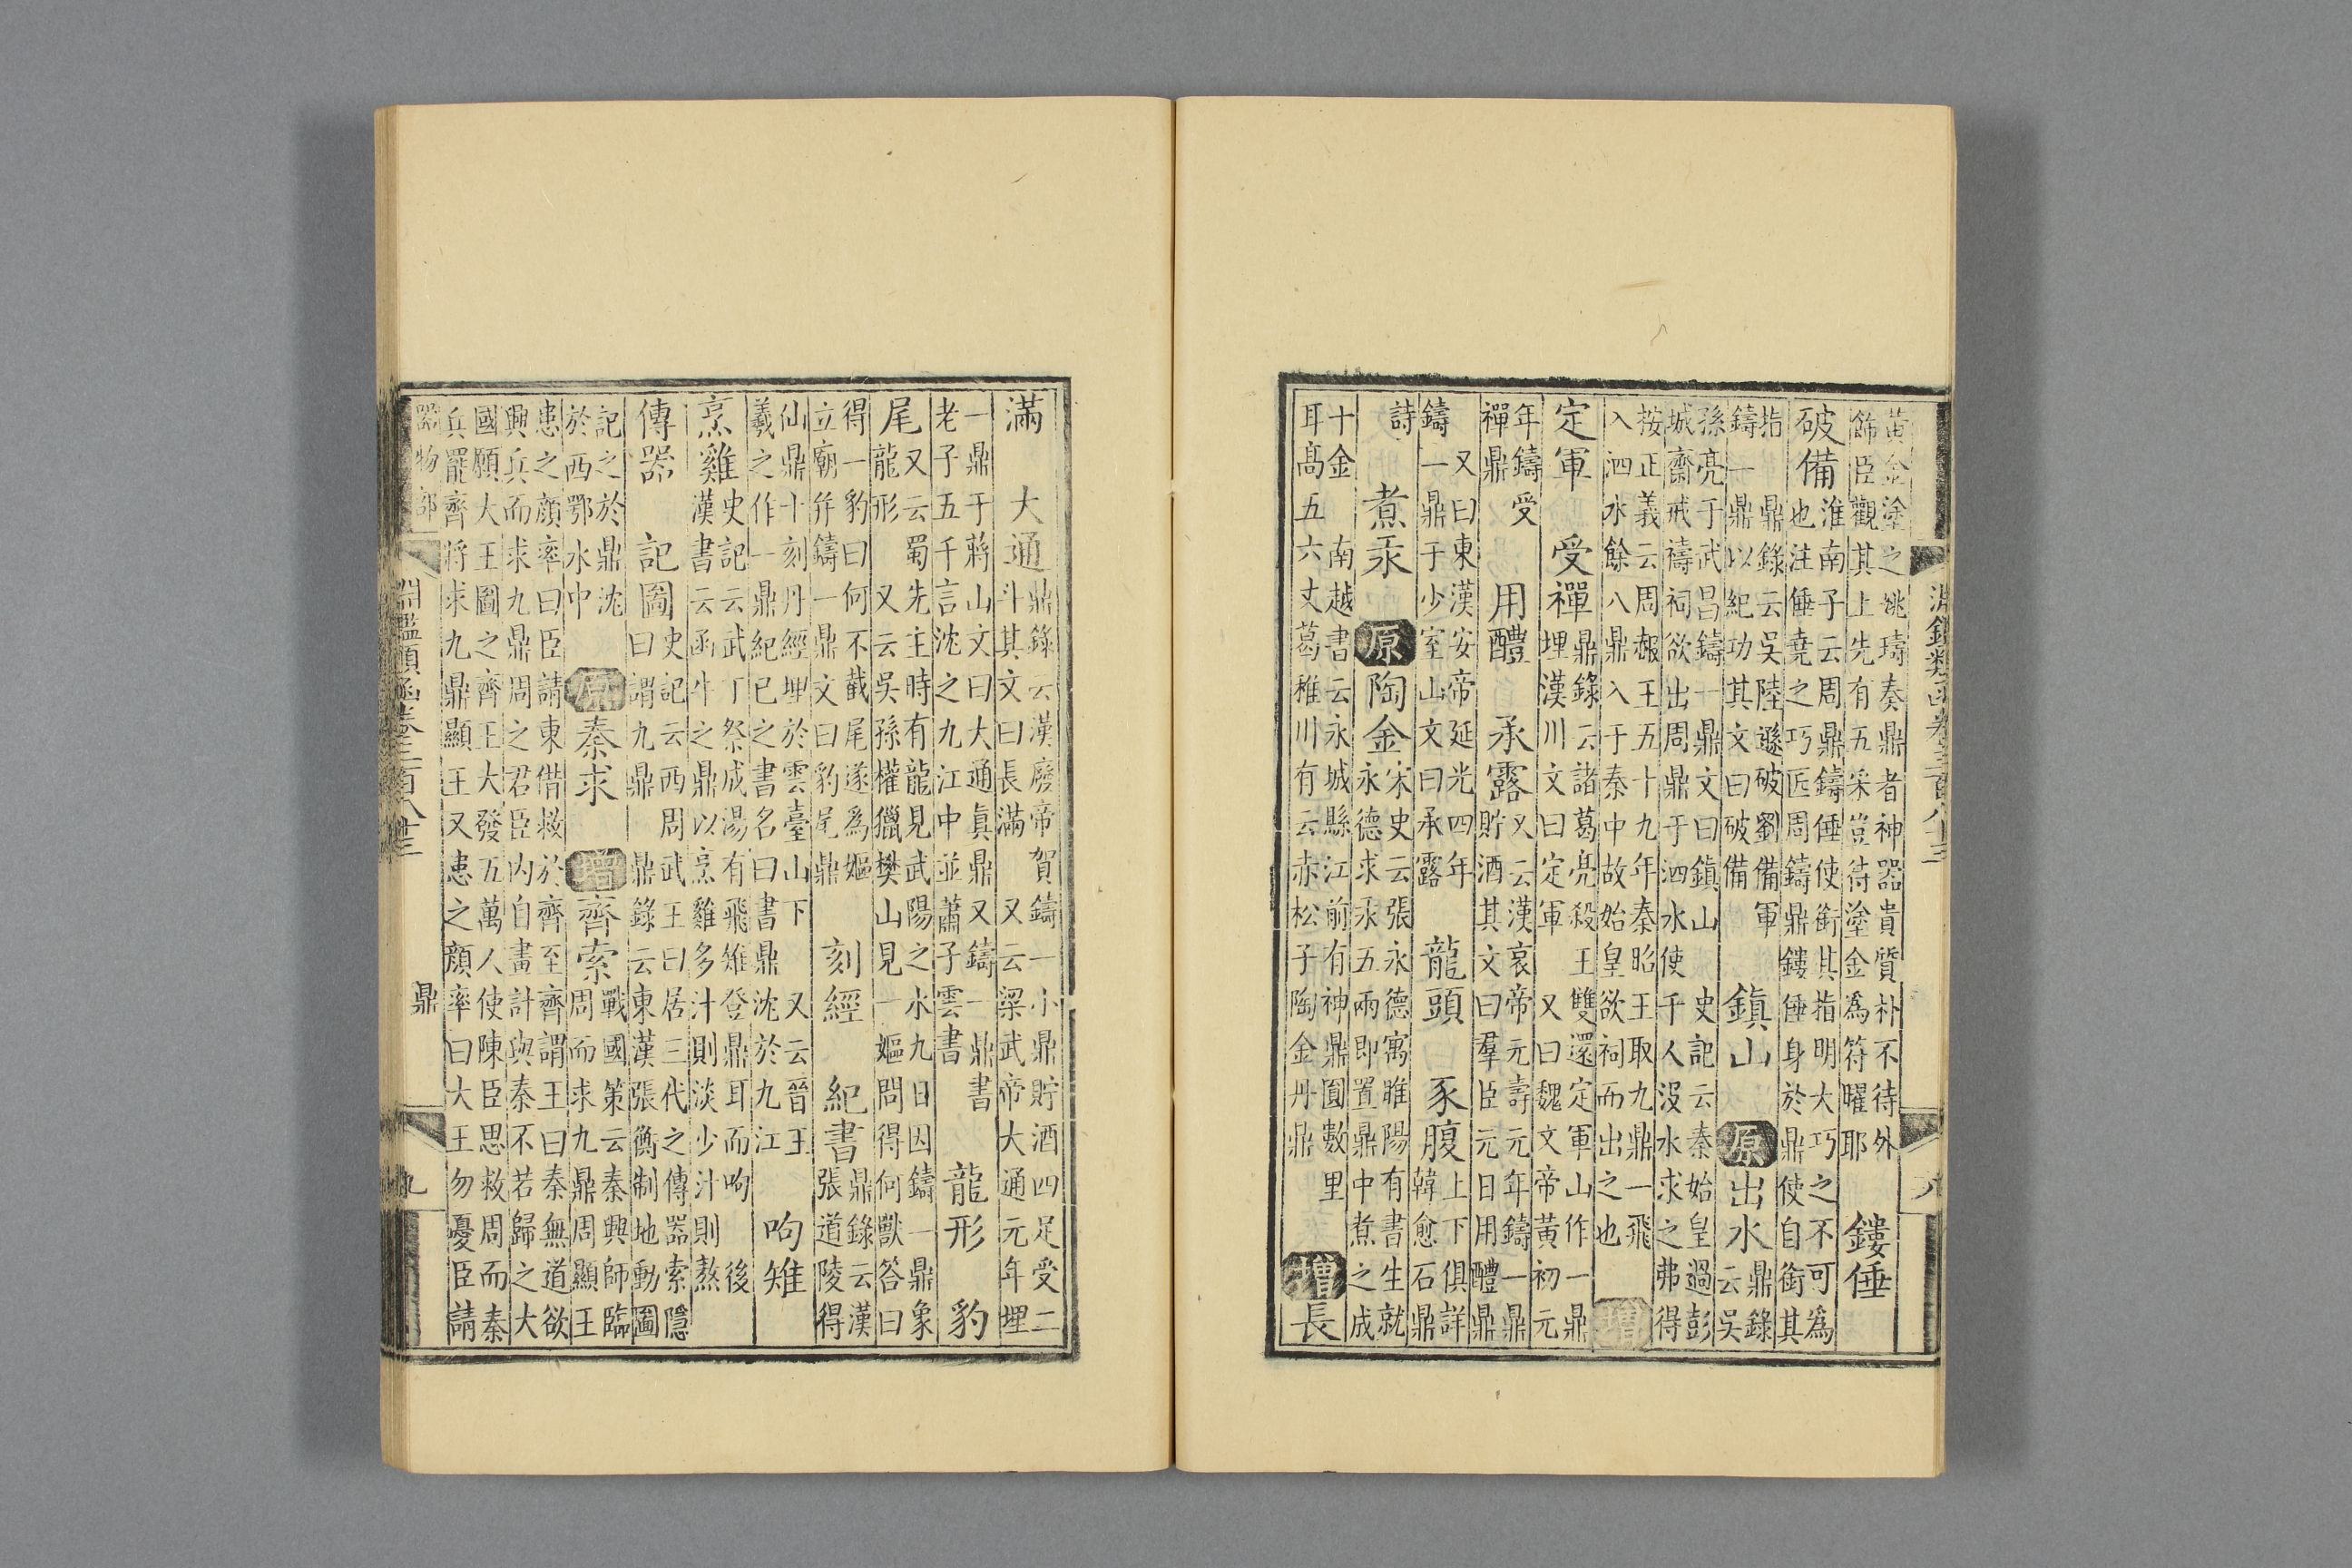 淵鑑類函卷三百八十三 八
黄金塗之姚璹奏鼎者神器貴質朴不待外飾臣觀其上先有五采豈待塗金爲符曜耶 鏤倕
破備 淮南子云周鼎鑄倕使銜其指明大巧之不可爲也注倕堯之巧匠周鑄鼎鏤倕身於鼎使自銜其
指 鼎錄云吳陸遜破劉備軍鑄一鼎以紀功其文曰破備 鎮山 原 出水 鼎錄云吳
孫亮于武昌鑄一鼎文曰鎮山 史記云秦始皇過彭城齋戒禱祠欲出周鼎于泗水使千人没水求之弗得
按正義云周赧王五十九年秦昭王取九鼎一飛入泗水餘八鼎入于秦中故始皇欲祠而出之也 增
定軍 受禪 鼎錄云諸葛亮殺王雙還定軍山作一鼎埋漢川文曰定軍 又曰魏文帝黃初元
年鑄受禪鼎 用醴 承露 又云漢哀帝元壽元年鑄一鼎貯酒其文曰羣臣元日用醴鼎
又曰東漢安帝延光四年鑄一鼎于少室山文曰承露 龍頭 豕腹 上下俱詳韓愈石鼎
詩 煮汞 原 陶金 宋史云張永德寓睢陽有書生就永德求汞五兩即置鼎中煮之成
十金 南越書云永城縣江前有神鼎圓數里耳高五六丈葛稚川有云赤松子陶金丹鼎 增 長
滿 大通 鼎錄云漢廢帝賀鑄一小鼎貯酒四足受二斗其文曰長滿 又云梁武帝大通元年埋
一鼎于蔣山文曰大通眞鼎又鑄一鼎書老子五千言沈之九江中並蕭子雲書 龍形 豹
尾 又云蜀先主時有龍見武陽之水九日因鑄一鼎象龍形 又云吳孫權獵樊山見一嫗問得何獸答曰
得一豹曰何不截尾遂爲嫗立廟并鑄一鼎文曰豹尾鼎 刻經 紀書 鼎錄云漢張道陵得
仙鼎十刻丹經埋於雲臺山下 又云晉王羲之作一鼎紀已之書名曰書鼎沈於九江 呴雉
烹雞 史記云武丁祭成湯有飛雉登鼎耳而呴 後漢書云函牛之鼎以烹雞多汁則淡少汁則熬
傳器 記圖 史記云西周武王曰居三代之傳器索隱曰謂九鼎 鼎錄云東漢張衡制地動圖
記之於鼎沈於西鄂水中 原 秦求 增 齊索 戰國策云秦興師臨周而求九鼎周顯王
患之顏率曰臣請東借救於齊至齊謂王曰秦無道欲興兵而求九鼎周之君臣内自畫計與秦不若歸之大
國願大王圖之齊王大發五萬人使陳臣思救周而秦兵罷齊將求九鼎顯王又患之顏率曰大王勿憂臣請
器物部 淵鑑類函卷三百八十三 鼎 九